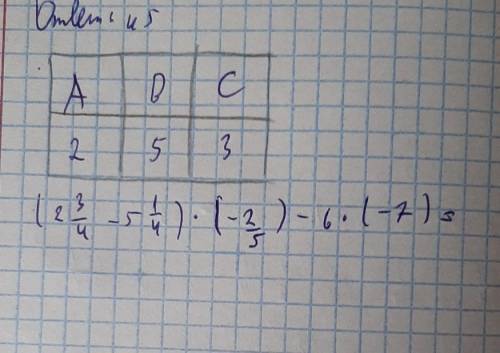 Ответ: 45
А В С
2 5 3
(2 3/4 - 5 1/4) · (- 2/5) - 6 · (-7) =